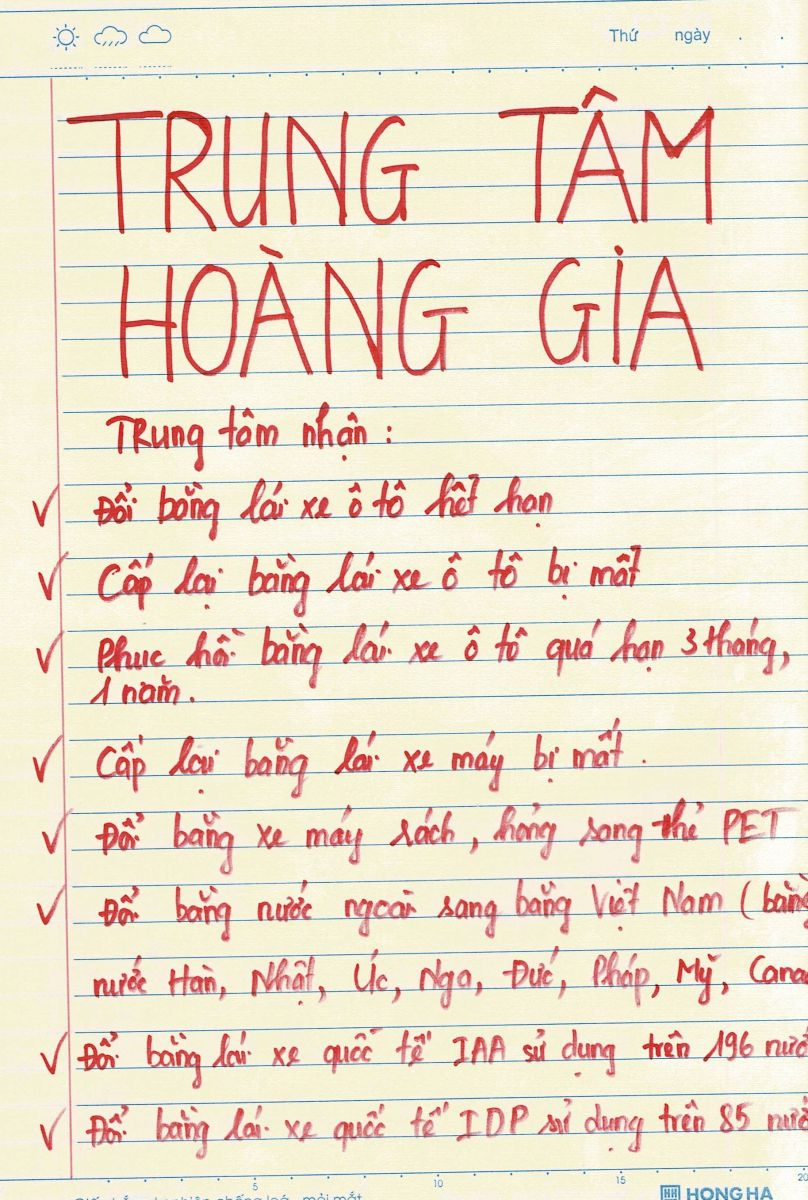 Thứ ngày . .
TRUNG TÂM
HOÀNG GIA
TRung tâm nhận :
✓ Đổi bằng lái xe ô tô hết hạn
✓ Cấp lại bằng lái xe ô tô bị mất
✓ Phục hồi bằng lái xe ô tô quá hạn 3 tháng,
1 năm.
✓ Cấp lại bằng lái xe máy bị mất .
✓ Đổi bằng xe máy rách, hỏng sang thẻ PET
✓ Đổi bằng nước ngoài sang bằng Việt Nam ( bằng
nước Hàn, Nhật, Úc, Nga, Đức, Pháp, Mỹ,
✓ Đổi bằng lái xe quốc tế IAA sử dụng trên 196 nước
✓ Đổi bằng lái xe quốc tế IDP sử dụng trên 85 nước
5 10 15 20
mỏi mắt HH HONG HA